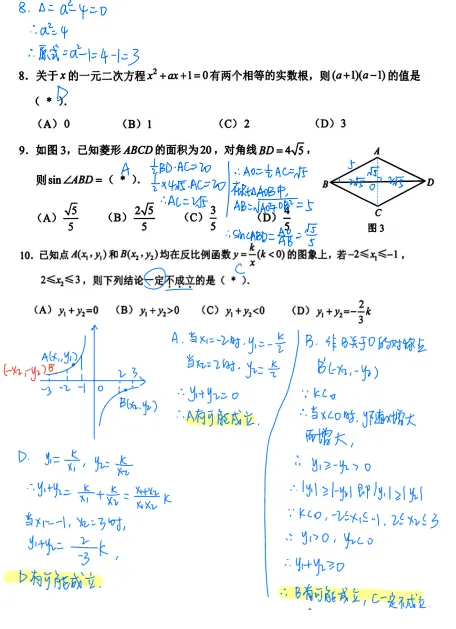 8. Δ = a²-4=0
∴a²=4
∴原式=a²-1=4-1=3
8．关于 x 的一元二次方程 x²+ax+1=0 有两个相等的实数根，则 (a+1)(a-1) 的值是
（ * ）． D
（A）0 （B）1 （C）2 （D）3
9．如图 3，已知菱形 ABCD 的面积为 20，对角线 BD=4√5，
则 sin∠ABD=（ * ）． A
（A）√5/5 （B）2√5/5 （C）3/5 （D）4/5
½BD·AC=20
½×4√5·AC=20
∴AC=2√5
∴AO=½AC=√5
在Rt△AOB中,
AB=√(AO²+OB²)=5
∴sin∠ABD=AO/AB=√5/5
A
5 √5
B 2√5 O 2√5 D
C
图 3
10．已知点 A(x₁,y₁) 和 B(x₂,y₂) 均在反比例函数 y=k/x (k<0) 的图象上，若 -2≤x₁≤-1，
2≤x₂≤3，则下列结论一定不成立的是（ * ）． C
（A）y₁+y₂=0 （B）y₁+y₂>0 （C）y₁+y₂<0 （D）y₁+y₂=-⅔k
A(x₁,y₁)
(-x₂,-y₂)B'
-3 -2 -1 0 2 3
B(x₂,y₂)
A. 当x₁=-2时,y₁=-k/2
当x₂=2时,y₂=k/2
∴y₁+y₂=0
∴A有可能成立.
B. 作B关于O的对称点
B'(-x₂,-y₂)
∵k<0
∴当x<0时,y随x增大
而增大,
∴y₁≥-y₂>0
∴|y₁|≥|-y₂| 即|y₁|≥|y₂|
∵k<0, -2≤x₁≤-1, 2≤x₂≤3
∴y₁>0, y₂<0
∴y₁+y₂≥0
∴B有可能成立, C一定不成立.
D. y₁=k/x₁, y₂=k/x₂
∴y₁+y₂=k/x₁+k/x₂=(x₁+x₂)/(x₁x₂) k
当x₁=-1, x₂=3时,
y₁+y₂=2/-3 k,
D有可能成立.